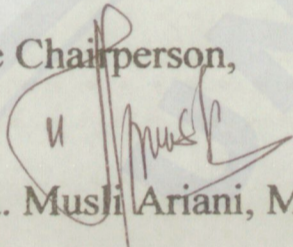 Chairperson,
Musli Ariani, M